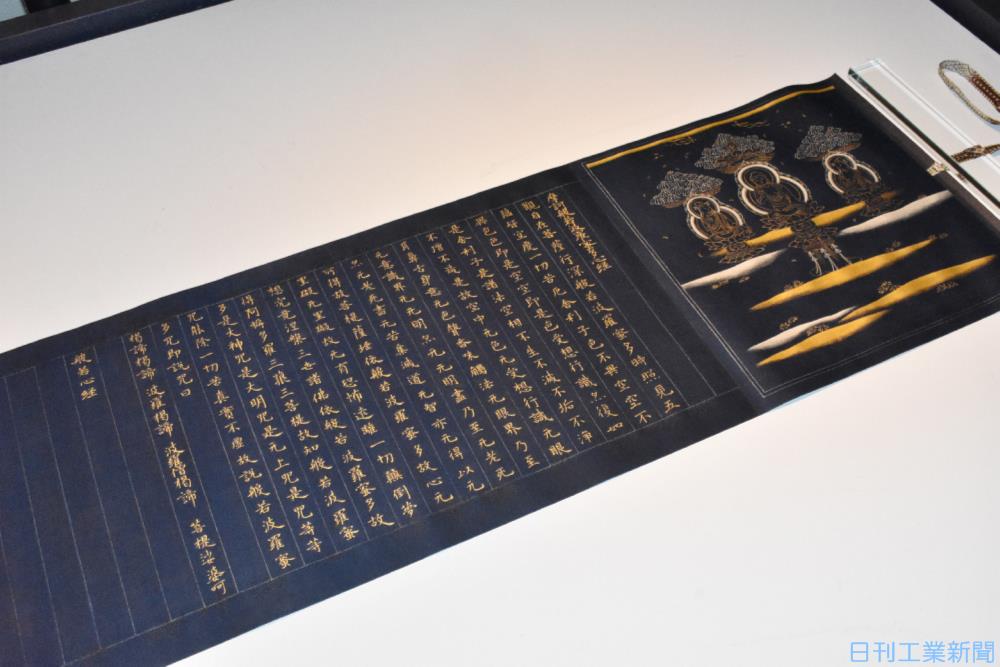 摩訶般若波羅蜜多心経
觀自在菩薩行深般若波羅蜜多時照見五
蘊皆空度一切苦厄舍利子色不異空空不
異色色即是空空即是色受想行識亦復如
是舍利子是諸法空相不生不滅不垢不淨
不增不減是故空中无色无受想行識无眼
耳鼻舌身意无色聲香味觸法无眼界乃至
无意識界无无明亦无无明盡乃至无老死
亦无老死盡无苦集滅道无智亦无得以无
所得故菩提薩埵依般若波羅蜜多故心无
罣礙无罣礙故无有恐怖遠離一切顛倒夢
想究竟涅槃三世諸佛依般若波羅蜜多故
得阿耨多羅三藐三菩提故知般若波羅蜜
多是大神咒是大明咒是无上咒是无等等
咒能除一切苦真實不虛故説般若波羅蜜
多咒即説咒曰
揭諦揭諦 波羅揭諦 波羅僧揭諦 菩提娑婆呵
般若心経
日刊工業新聞